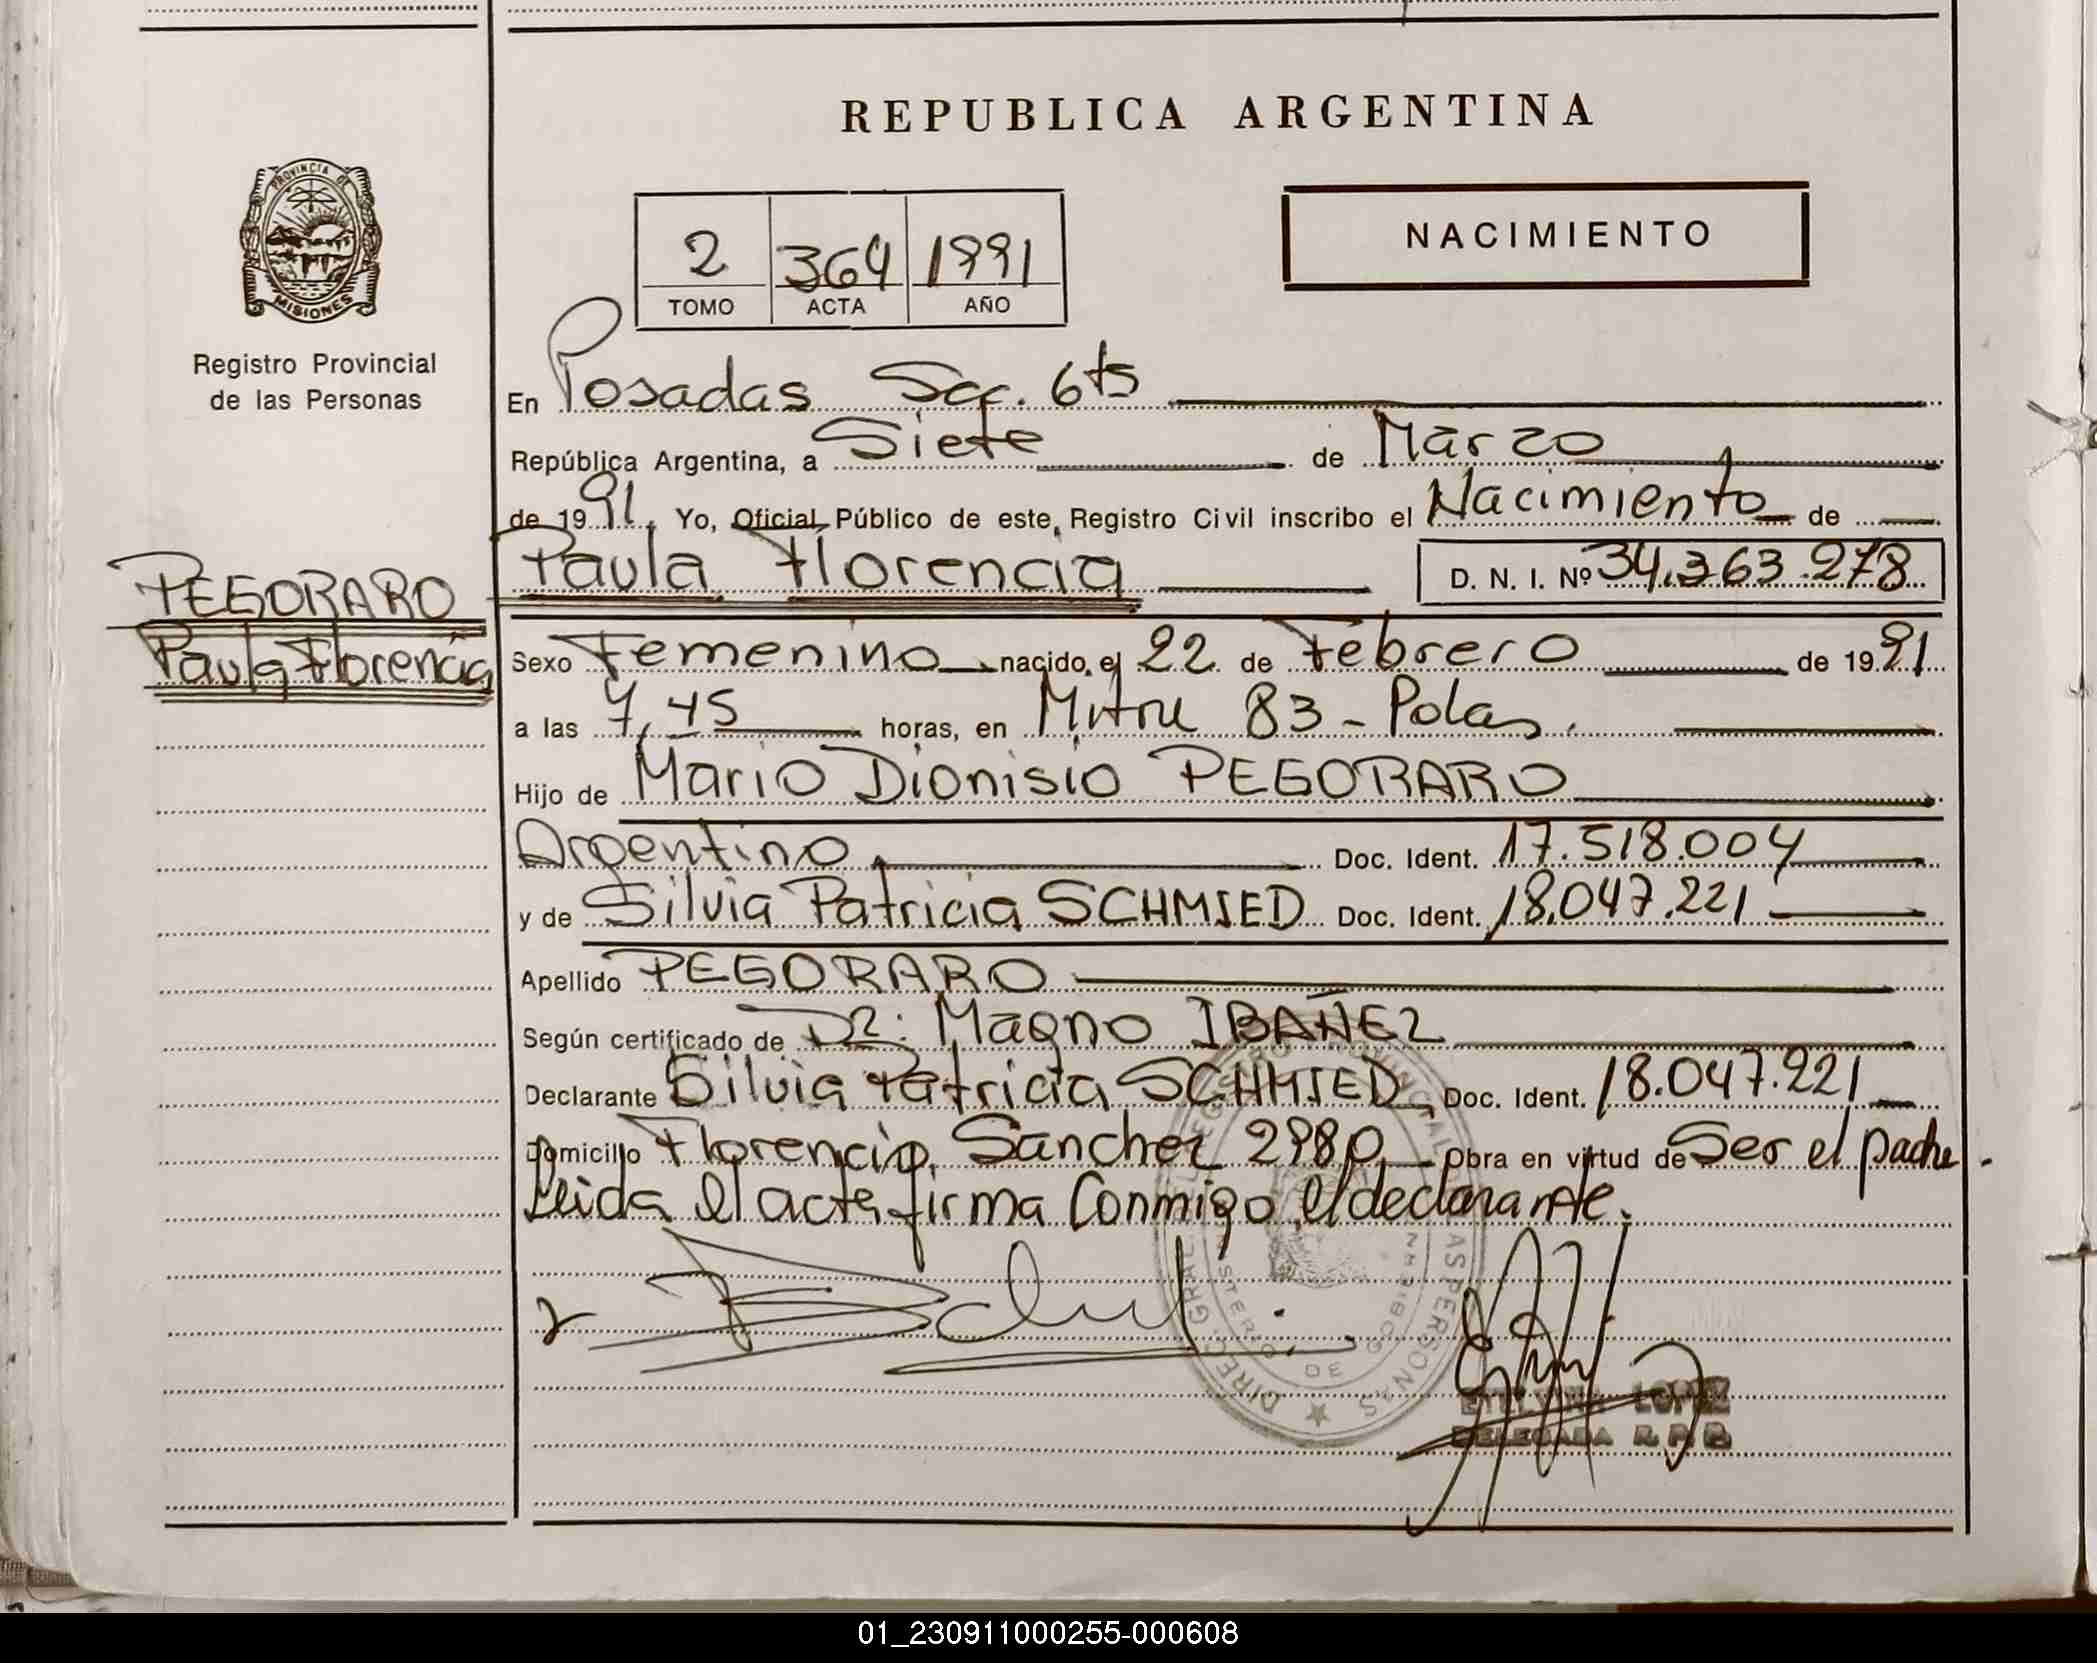 REPUBLICA ARGENTINA
PROVINCIA DE
MISIONES
Registro Provincial
de las Personas
2 364 1991
TOMO ACTA AÑO
NACIMIENTO
En Posadas Sec. 6ta
República Argentina, a Siete de Marzo
de 1991. Yo, Oficial Público de este Registro Civil inscribo el Nacimiento de
Paula Florencia D. N. I. Nº 34.363.278
PEGORARO
Paula Florencia
Sexo Femenino nacido el 22 de Febrero de 1991
a las 7,45 horas, en Mitre 83 - Pdas.
Hijo de Mario Dionisio PEGORARO
Argentino Doc. Ident. 17.518.004
y de Silvia Patricia SCHMIED Doc. Ident. 18.047.221
Apellido PEGORARO
Según certificado de Dr. Magno IBAÑEZ
Declarante Silvia Patricia SCHMIED Doc. Ident. 18.047.221
Domicilio Florencio Sanchez 2980 Obra en virtud de Ser el padre.
Leida el acta firma Conmigo el declarante.
DIREC. GRAL. DEL REGISTRO PROVINCIAL DE LAS PERSONAS
MINISTERIO DE GOBIERNO
ETELVINA LOPEZ
DELEGADA R. P. P.
01_230911000255-000608